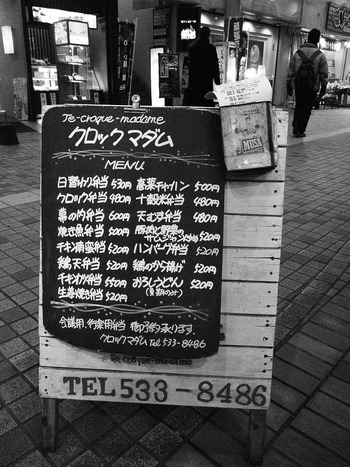 Je-croque-madame
クロックマダム
MENU
日替わり弁当 430円 高菜チャーハン 500円
クロック弁当 480円 十穀米弁当 480円
幕の内弁当 600円 天むす弁当 480円
焼き魚弁当 500円 豚肉と野菜の
サムジャン 520円
チキン南蛮弁当 520円 ハンバーグ弁当 520円
鶏天弁当 520円 鶏のから揚げ 520円
チキンカツ弁当 550円 おろしうどん 520円
生姜焼き弁当 520円 (夏期のみ)
会議用、行楽用弁当 御予約承ります。
クロックマダム Tel 533-8486
Je croque-madame
TEL 533-8486
MUSA